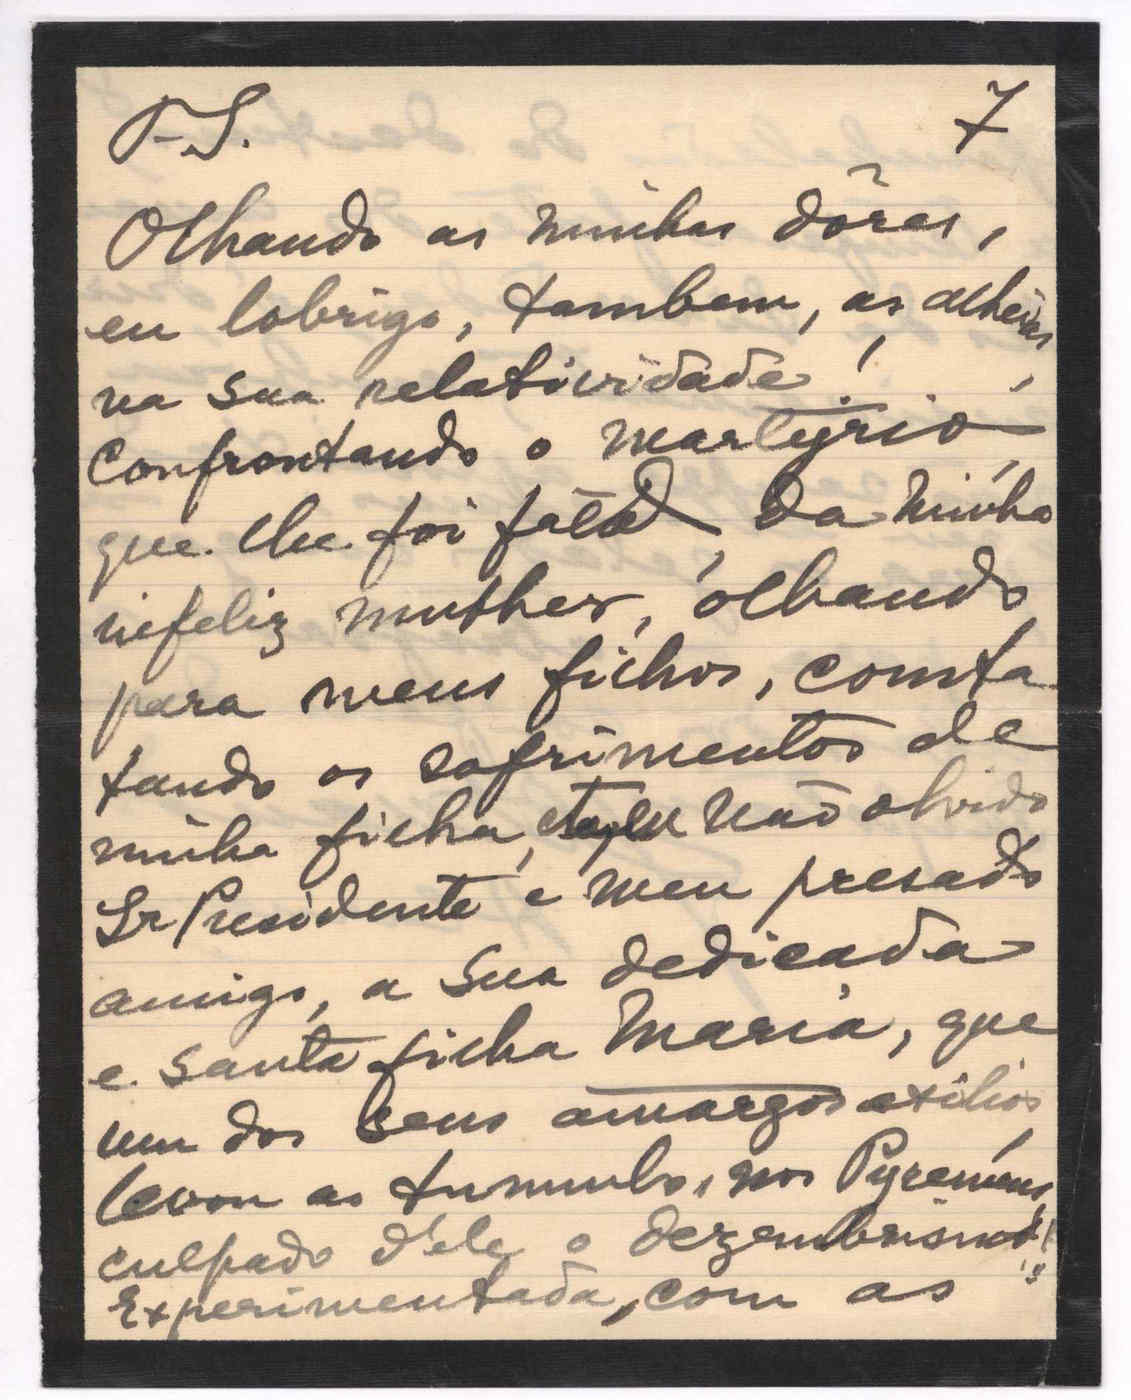 P.S. 7
Olhando as minhas dôres,
eu lobrigo, tambem, as alheias,
na sua relatividade!
Confrontando o martyrio,
que lhe foi fatal, da minha
infeliz mulher, olhando
para meus filhos, consta
tando os sofrimentos de
minha filha, não olvido
Sr Presidente e meu presado
amigo, a sua dedicada
e santa filha Maria, que
um dos seus amargos exilios
levou ao tumulo, nos Pyreneus,
culpado d'ele o dezembrismo!!
Experimentada, com as